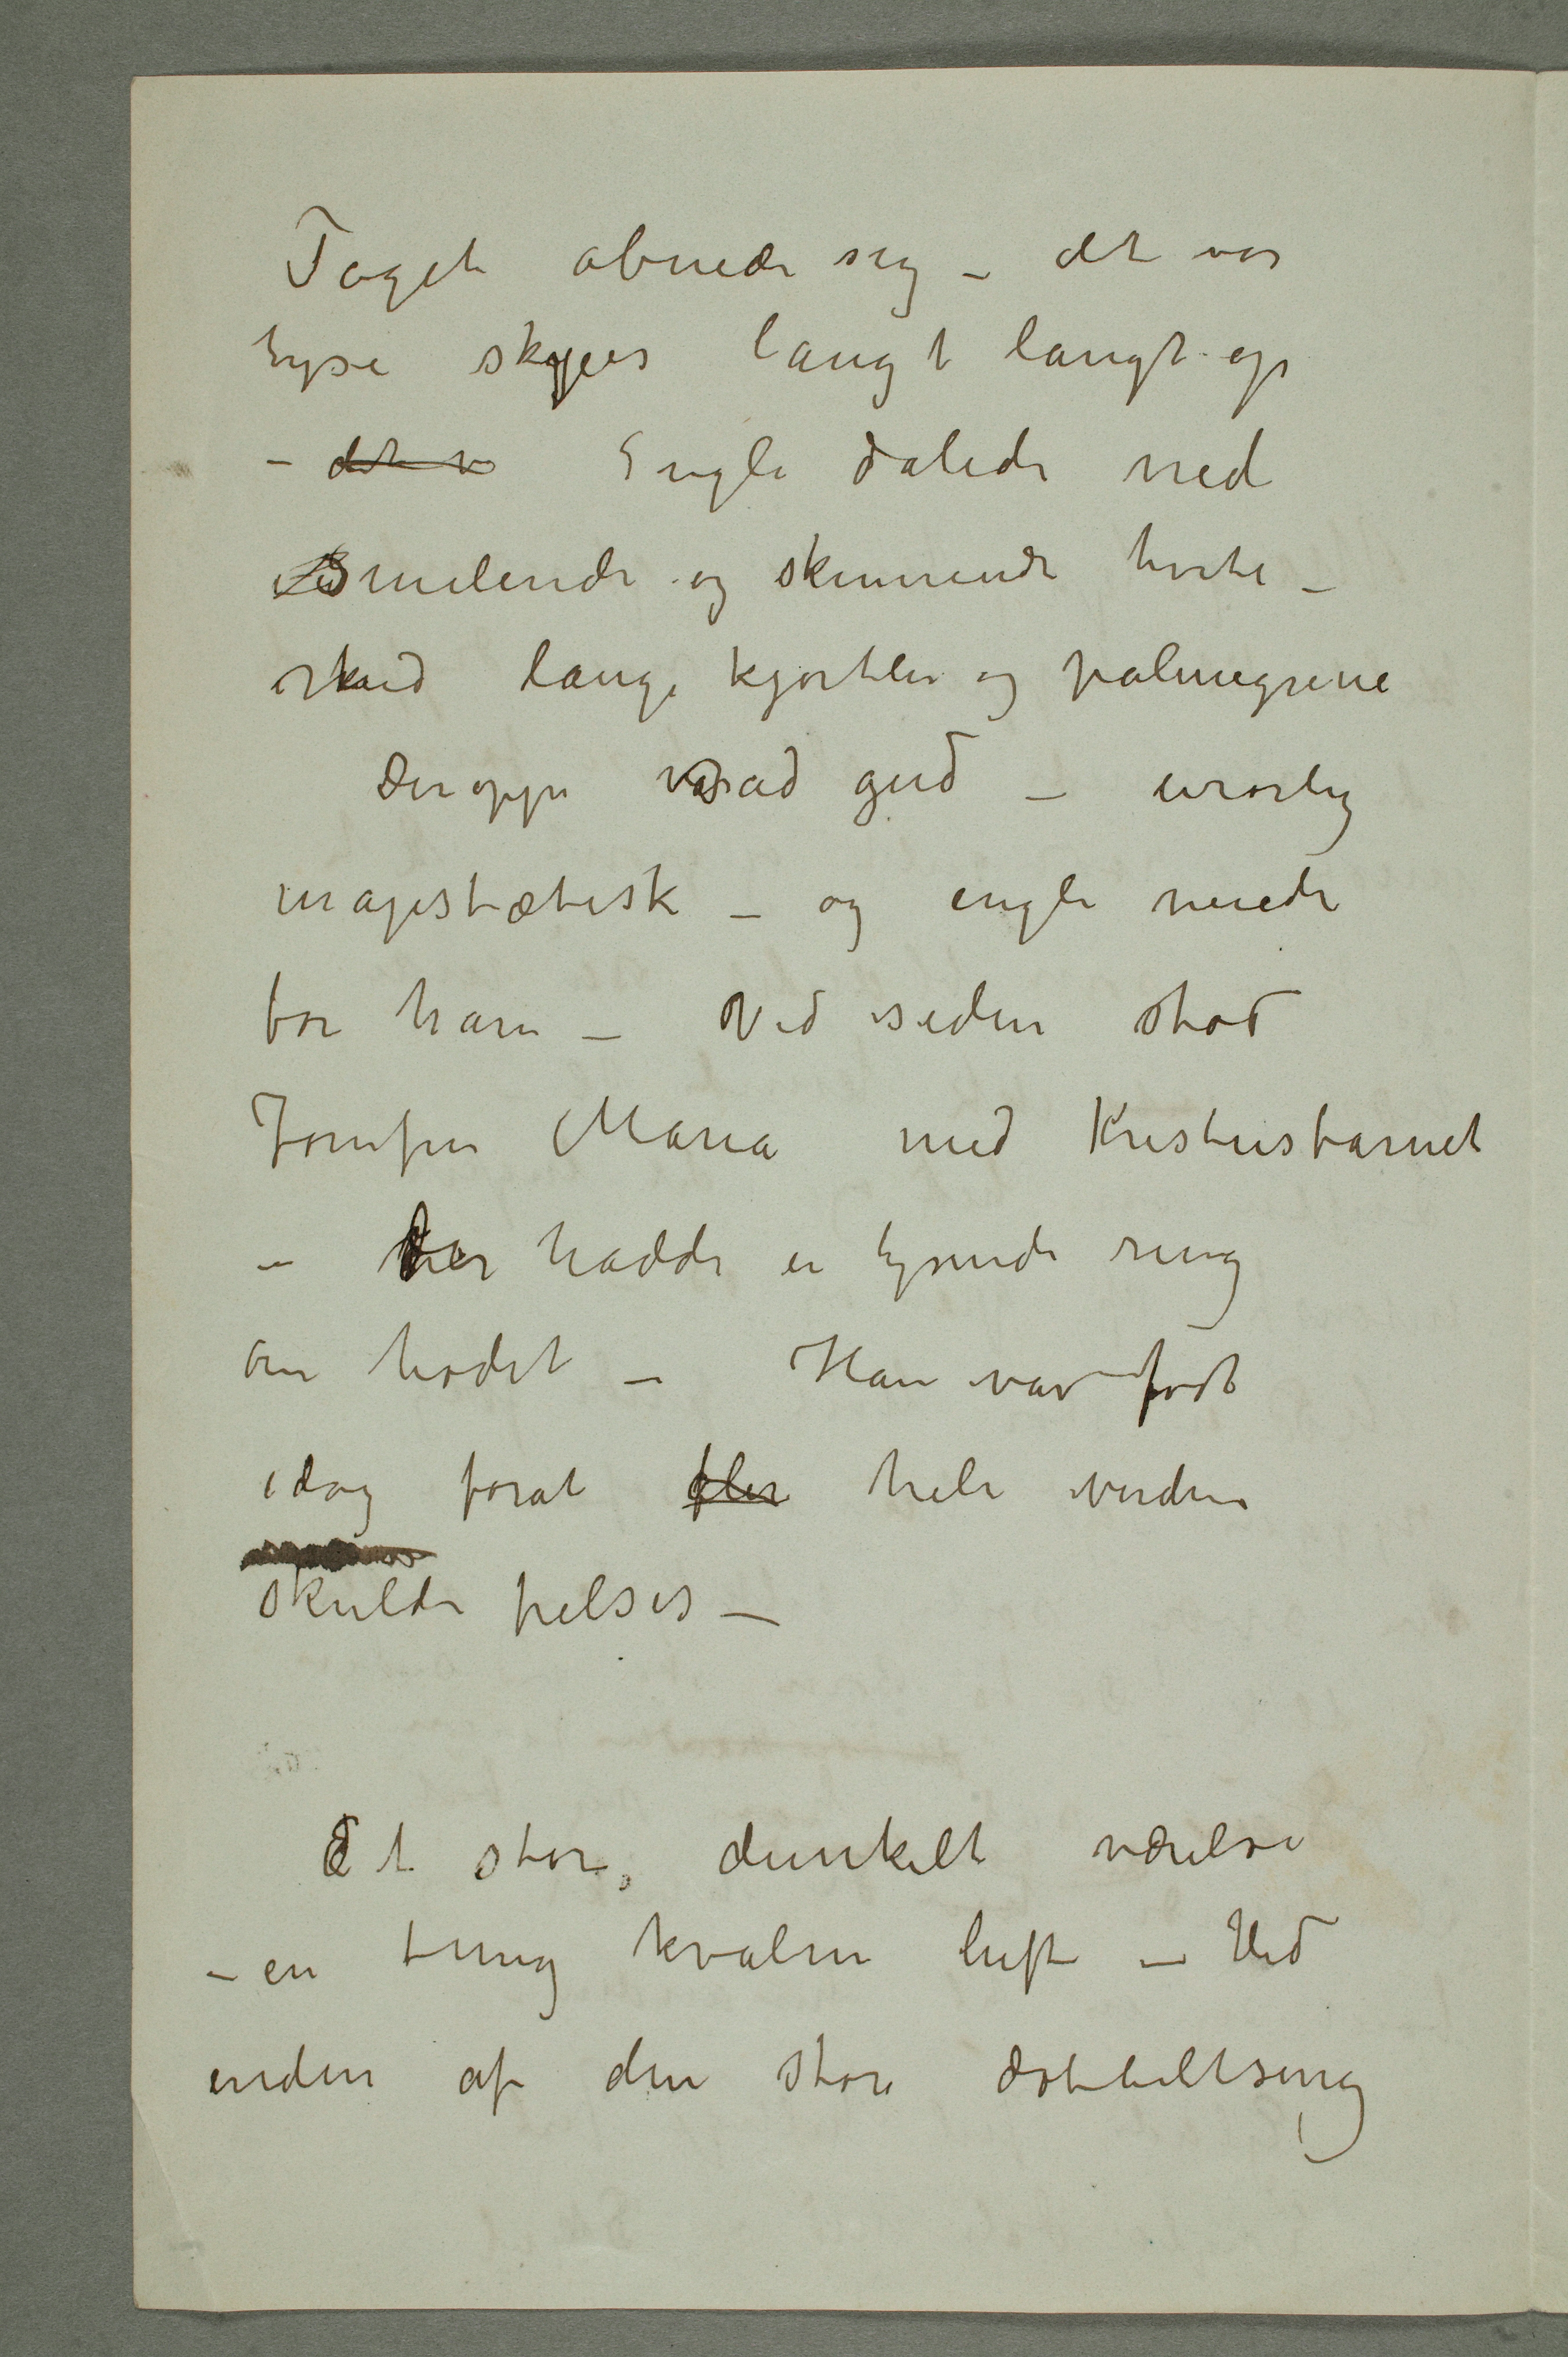 Taget åbnede sig – det var
lyse skyer langt langt op
– det v Engle dalede ned
smilende og skinnende hvite –
med lange kjortler og palmegrene
Deroppe sad gud – urørlig
majestætisk – og engle nenede
for ham – Ved siden stod
Jomfru Maria med Kristusbarnet
– der hadde en lysende ring
om hodet – Han var født
idag forat hele verden
skulde frelses –
Et stor, dunkelt værelse
– en tung kvalm luft – Ved
enden af den store dobbeltseng